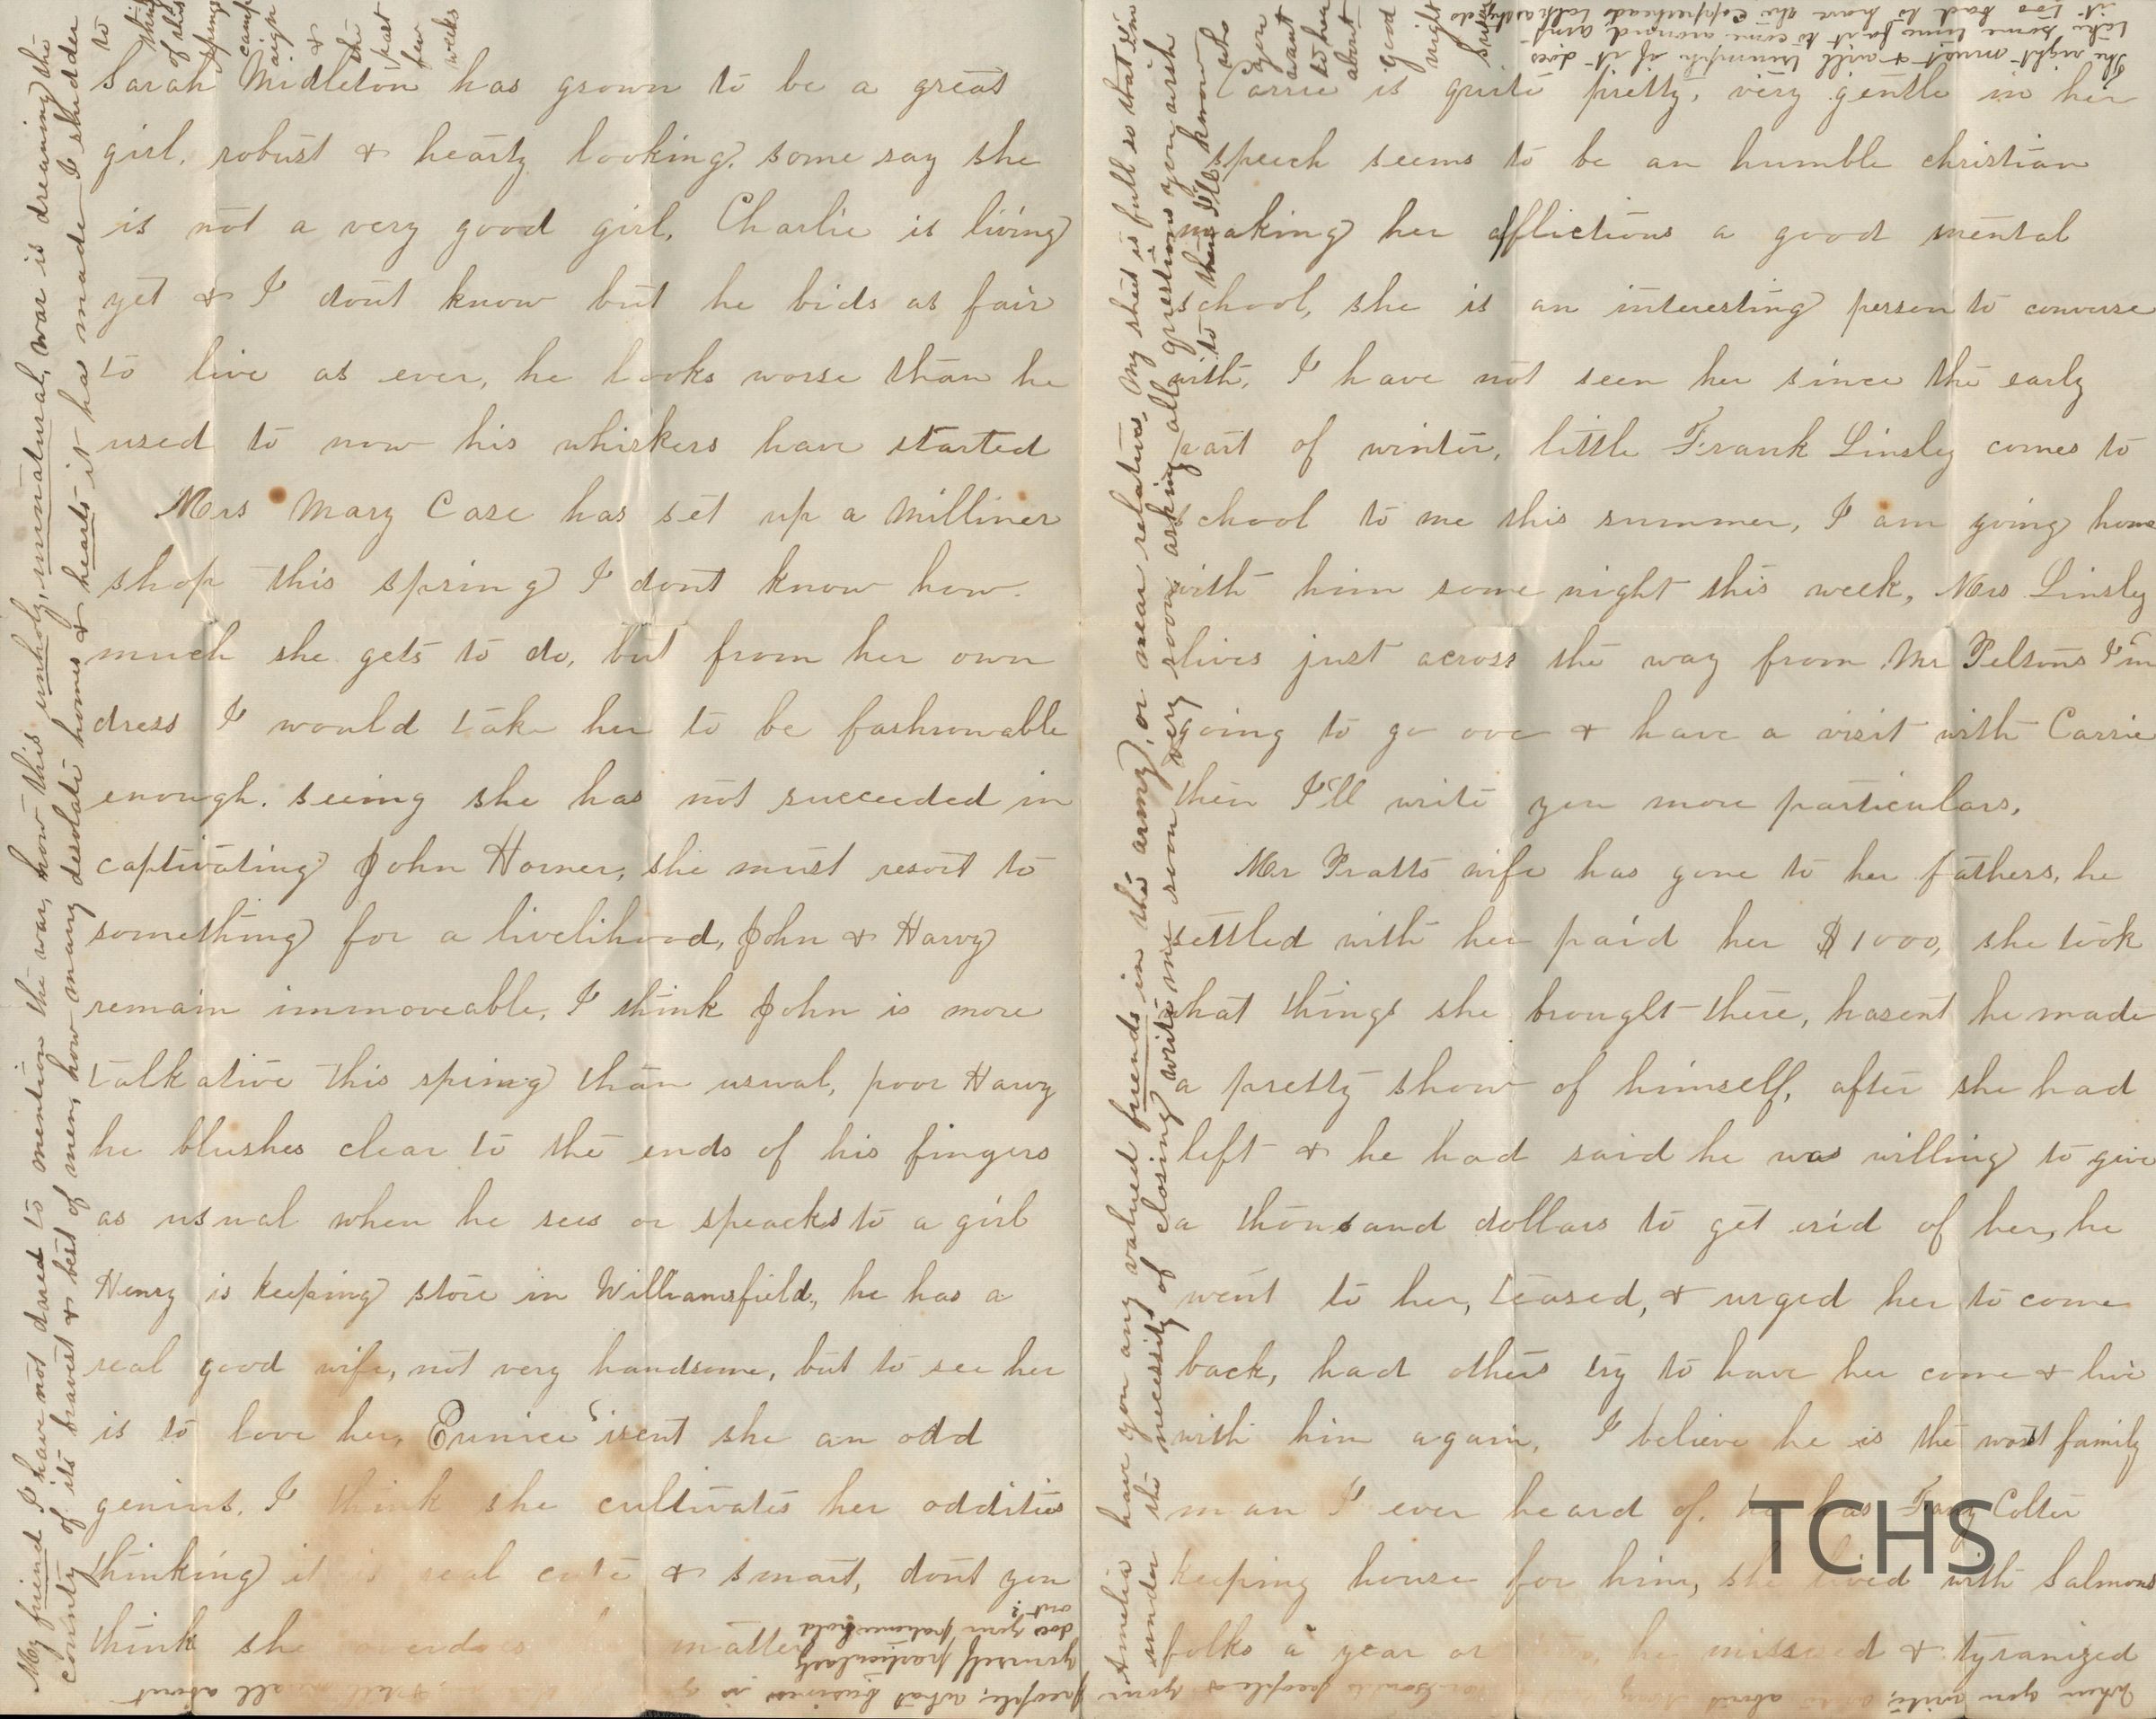 Sarah Midleton has grown to be a great
girl, robust & hearty looking, some say she
is not a very good girl, Charlie is living
yet & I dont know but he bids as fair
to live as ever, he looks worse than he
used to now his whiskers have started
Mrs Mary Case has set up a milliner
shop this spring I dont know how
much she gets to do, but from her own
dress I would take her to be fashionable
enough. seeing she has not succeeded in
captivating John Horner, she must resort to
something for a livelihood, John & Harvy
remain immoveable, I think John is more
talkative this spring than usual, poor Harvy
he blushes clear to the ends of his fingers
as usual when he sees or speacks to a girl
Henry is keeping store in Williamsfield, he has a
real good wife, not very handsome, but to see her
is to love her, Eunice isent she an odd
genius. I think she cultivates her oddities
thinking it is real cute & smart, dont you
think she overdoes the matter
Carrie is quite pretty, very gentle in her
speech seems to be an humble christian
making her afflictions a good mental
school, she is an interesting person to converse
with, I have not seen her since the early
part of winter, little Frank Linsley comes to
school to me this summer, I am going home
with him some night this week, Mrs Linsly
lives just across the way from Mr Pelsons I'm
going to go over & have a visit with Carrie
then I'll write you more particulars.
Mr Pratts wife has gone to her fathers, he
settled with her paid her $1000, she took
what things she brought there, hasent he made
a pretty show of himself, after she had
left & he had said he was willing to give
a thousand dollars to get rid of her, he
went to her, teased, & urged her to come
back, had others try to have her come & live
with him again, I believe he is the worst family
man I ever heard of, he has Fany Colter
keeping house for him, she lived with Salmons
folks a year or he missused & tyranized
My friend I have not dared to mention the war, how this unholy, unnatural, war is dreaning the
county of its bravest & best of men, how many desolate homes & hearts it has made I shudder
to
think
of this
spring
camp
aign
&
the
past
few
weeks
The right must & will triumph if it does
take some time for it to come around, aint
it too bad to have the Copperheads talk as they do
Amelia have you any valued friends in the army, or near relatives, My sheet is full so that I'm
under the necessity of closing write me soon very soon asking all questions you wish
to then I'll know
who
you
want
to hear
about
good
night
When you write, about
people & your
people, what business is
yourself particularly
does your patience hold
out?
TCHS